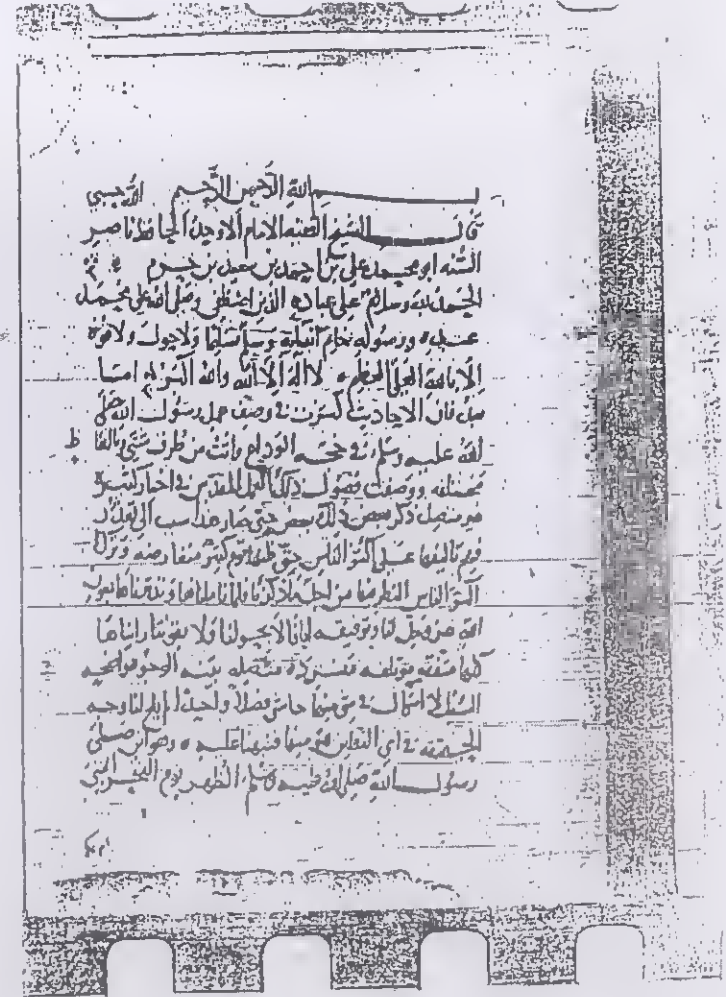 بسم الله الرحمن الرحيم
قال الشيخ الفقيه الامام الاوحد الحافظ ناصر
السنه ابو محمد علي بن احمد بن سعيد بن حزم
الحمد لله وسلام على عباده الذين اصطفى وصلى الله على محمد
عبده ورسوله خاتم انبيائه وسلم تسليما ولا حول ولا قوة
الا بالله العلي العظيم لا اله الا الله والله اكبر اما
بعد فان الاحاديث كثرت في وصف عمل رسول الله صلى
الله عليه وسلم في حجة الوداع واتت من طرق شتى بالفاظ
ط
مختلفه ووصفت فصول ذلك العمل المقدس في اخبار كثيرة
غير متصل ذكر بعض ذلك ببعض حتى صار هذا سببا الى تعذر
فهم تاليفها على اكثر الناس حتى ظنها قوم كثير متعارضه وترك
اكثر الناس النظر فيها من اجل ما ذكرنا فلما تاملناها وتدبرناها بعون
الله عز وجل لنا وتوفيقه ايانا لا بحولنا ولا بقوتنا رايناها
كلها متفقه مؤتلفه منسرده متصله بينة الوجوه واضحه
السبل لا اشكال في شي منها حاشى فصلا واحدا لم يلح لنا وجه
الحقيقه في اي النقلين هو منها فنبهنا عليه وهو اين صلى
رسول الله صلى الله عليه وسلم الظهر يوم النحر